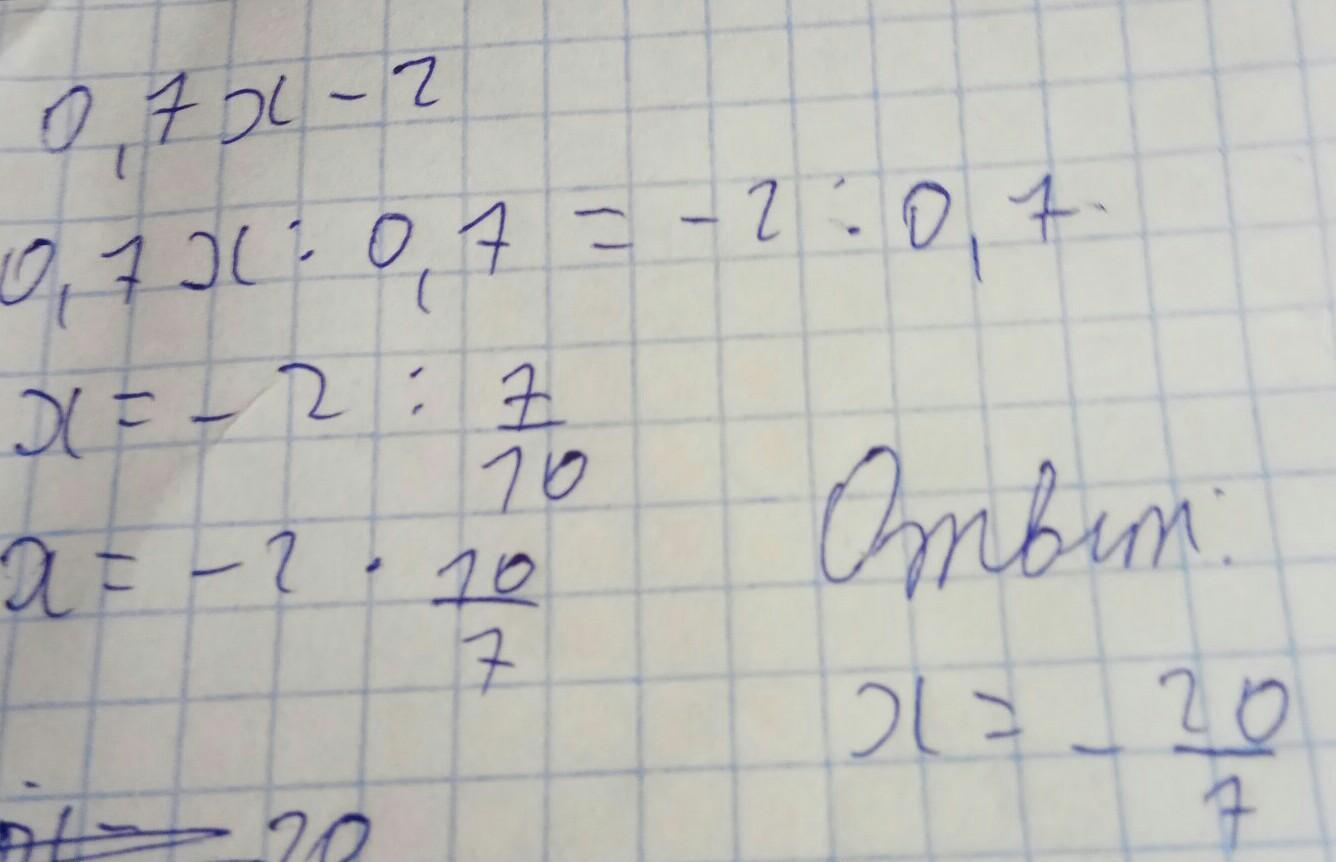 0,7x - 2
0,7x : 0,7 = - 2 : 0,7
x = - 2 : 7/10
x = - 2 · 10/7
Ответ:
x = - 20/7
20